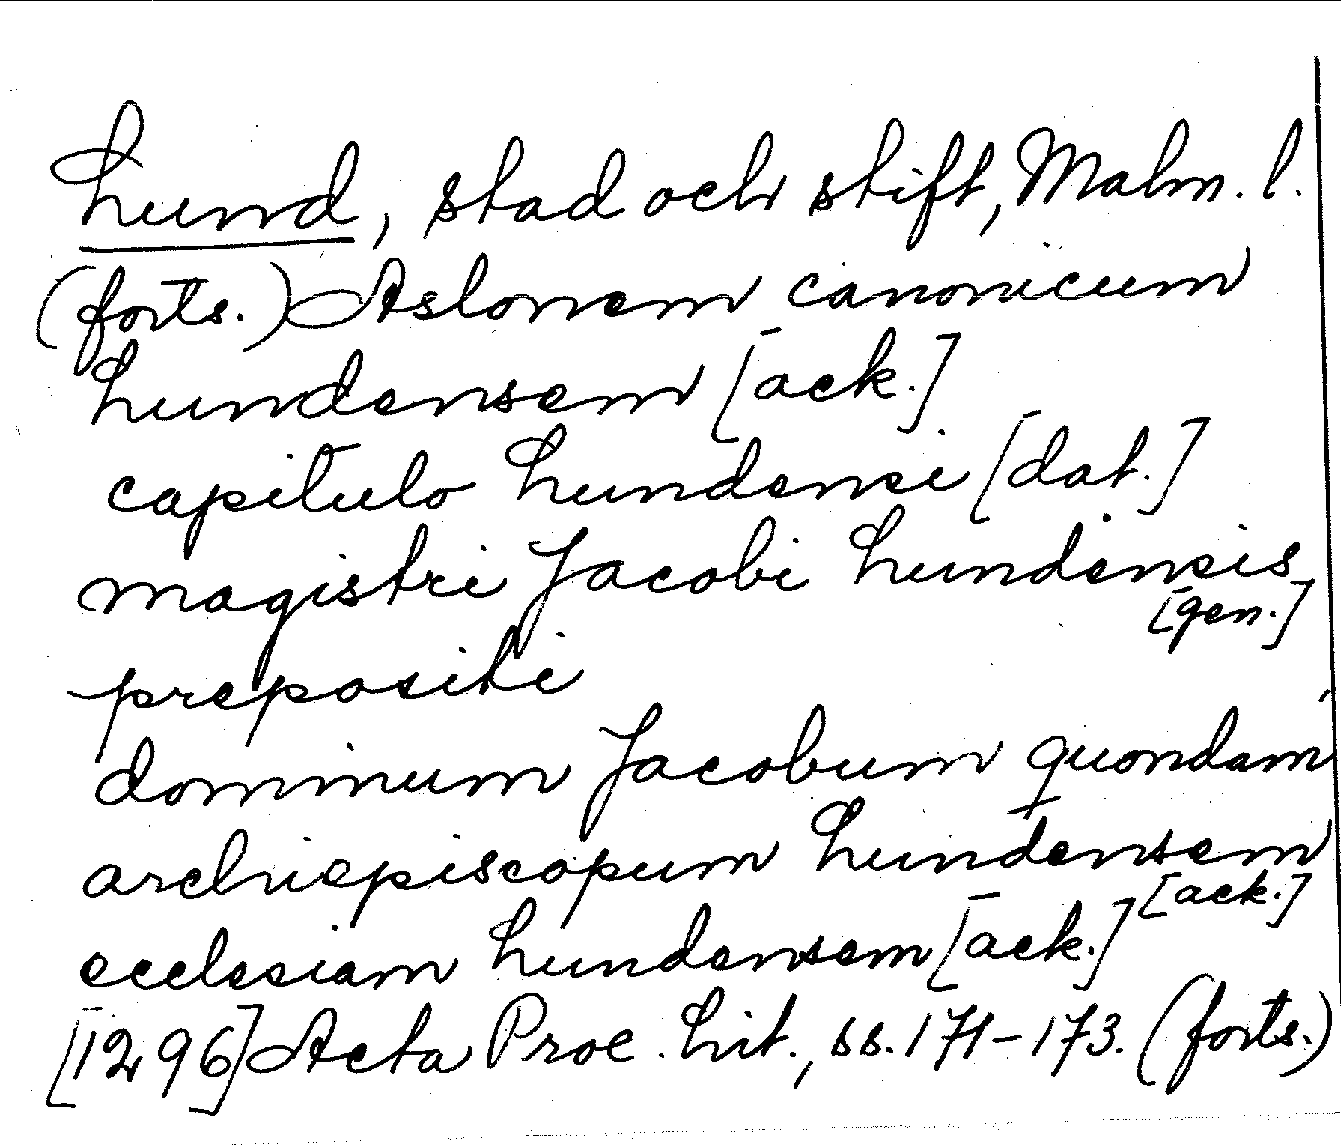 Lund, stad och stift, Malm. l.
(forts.) Aslonem canonicum
Lundensem [ack.]
capitulo Lundensi [dat.]
magistri Jacobi Lundensis
[gen.]
prepositi
dominum Jacobum quondam
archiepiscopum Lundensem
[ack.]
ecclesiam Lundensem [ack.]
[1296] Acta Proc. Lit., ss. 171-173. (forts.)